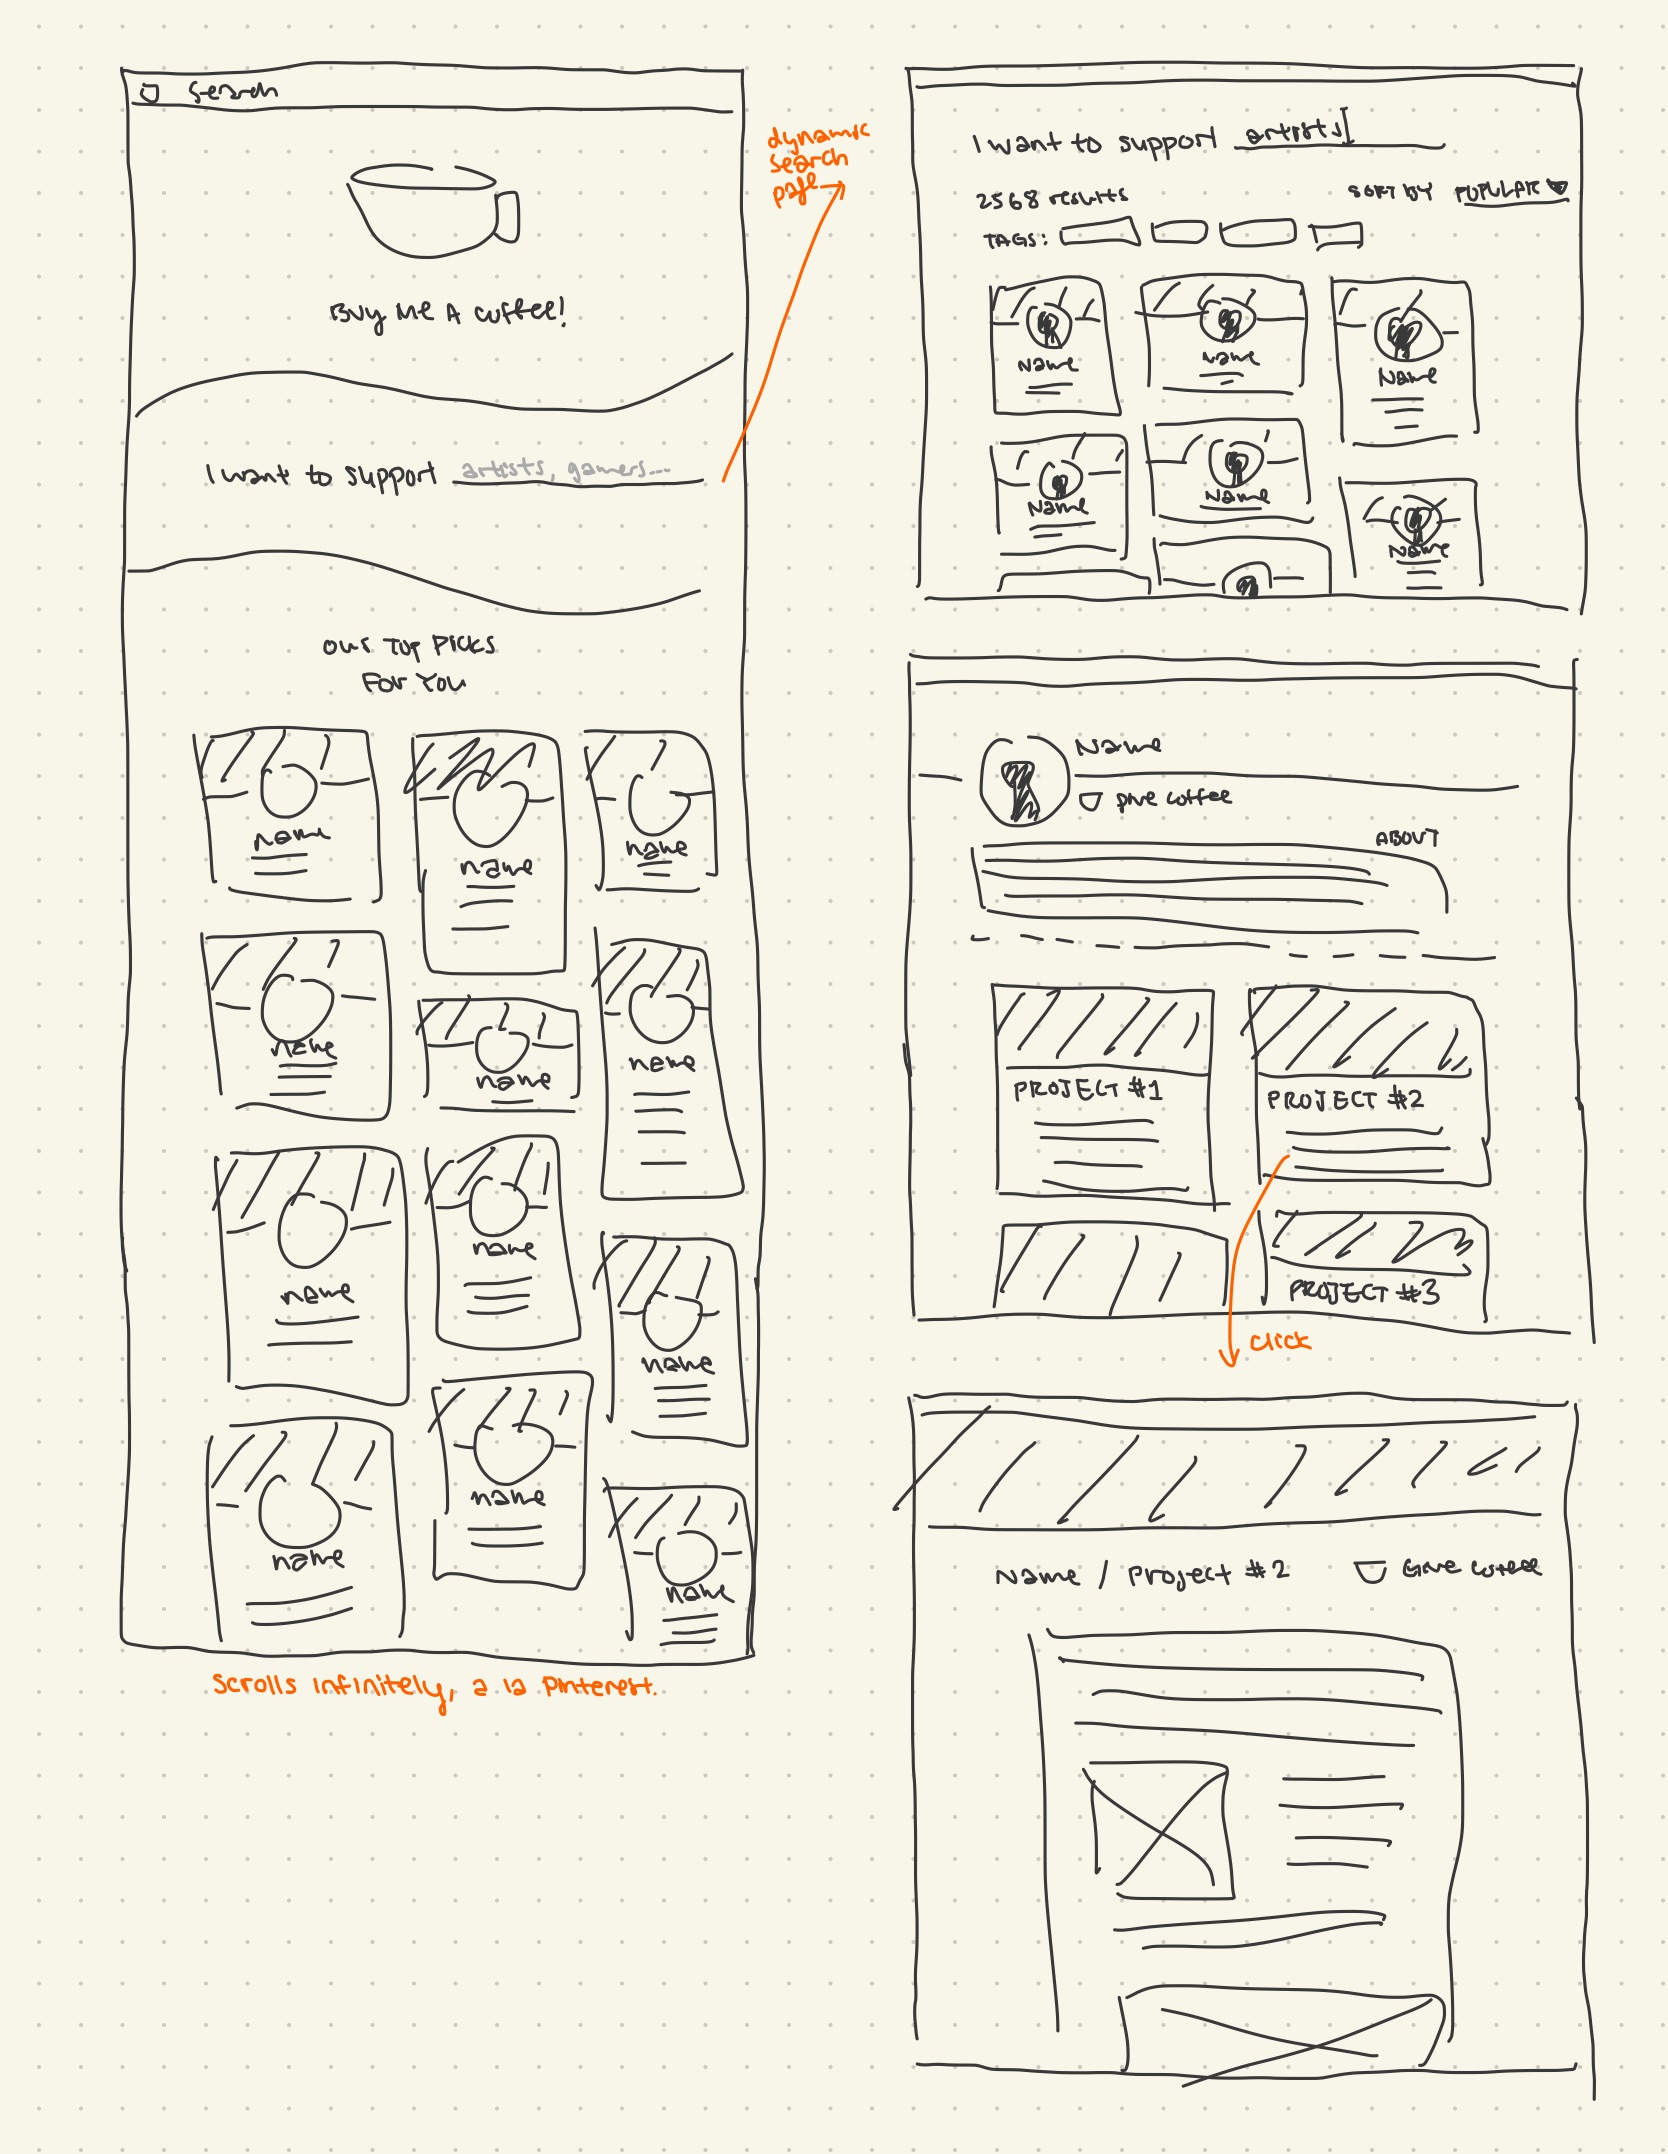 search
BUY ME A COFFEE!
I want to support artists, gamers...
OUR TOP PICKS
FOR YOU
name
name
name
name
name
name
name
name
name
name
name
name
Scrolls infinitely, a la Pinterest.
dynamic
search
page
I want to support artists
2568 results
SORT BY POPULAR
TAGS:
Name
Name
Name
Name
Name
Name
Name
give coffee
ABOUT
PROJECT #1
PROJECT #2
PROJECT #3
click
Name / Project #2
Give coffee